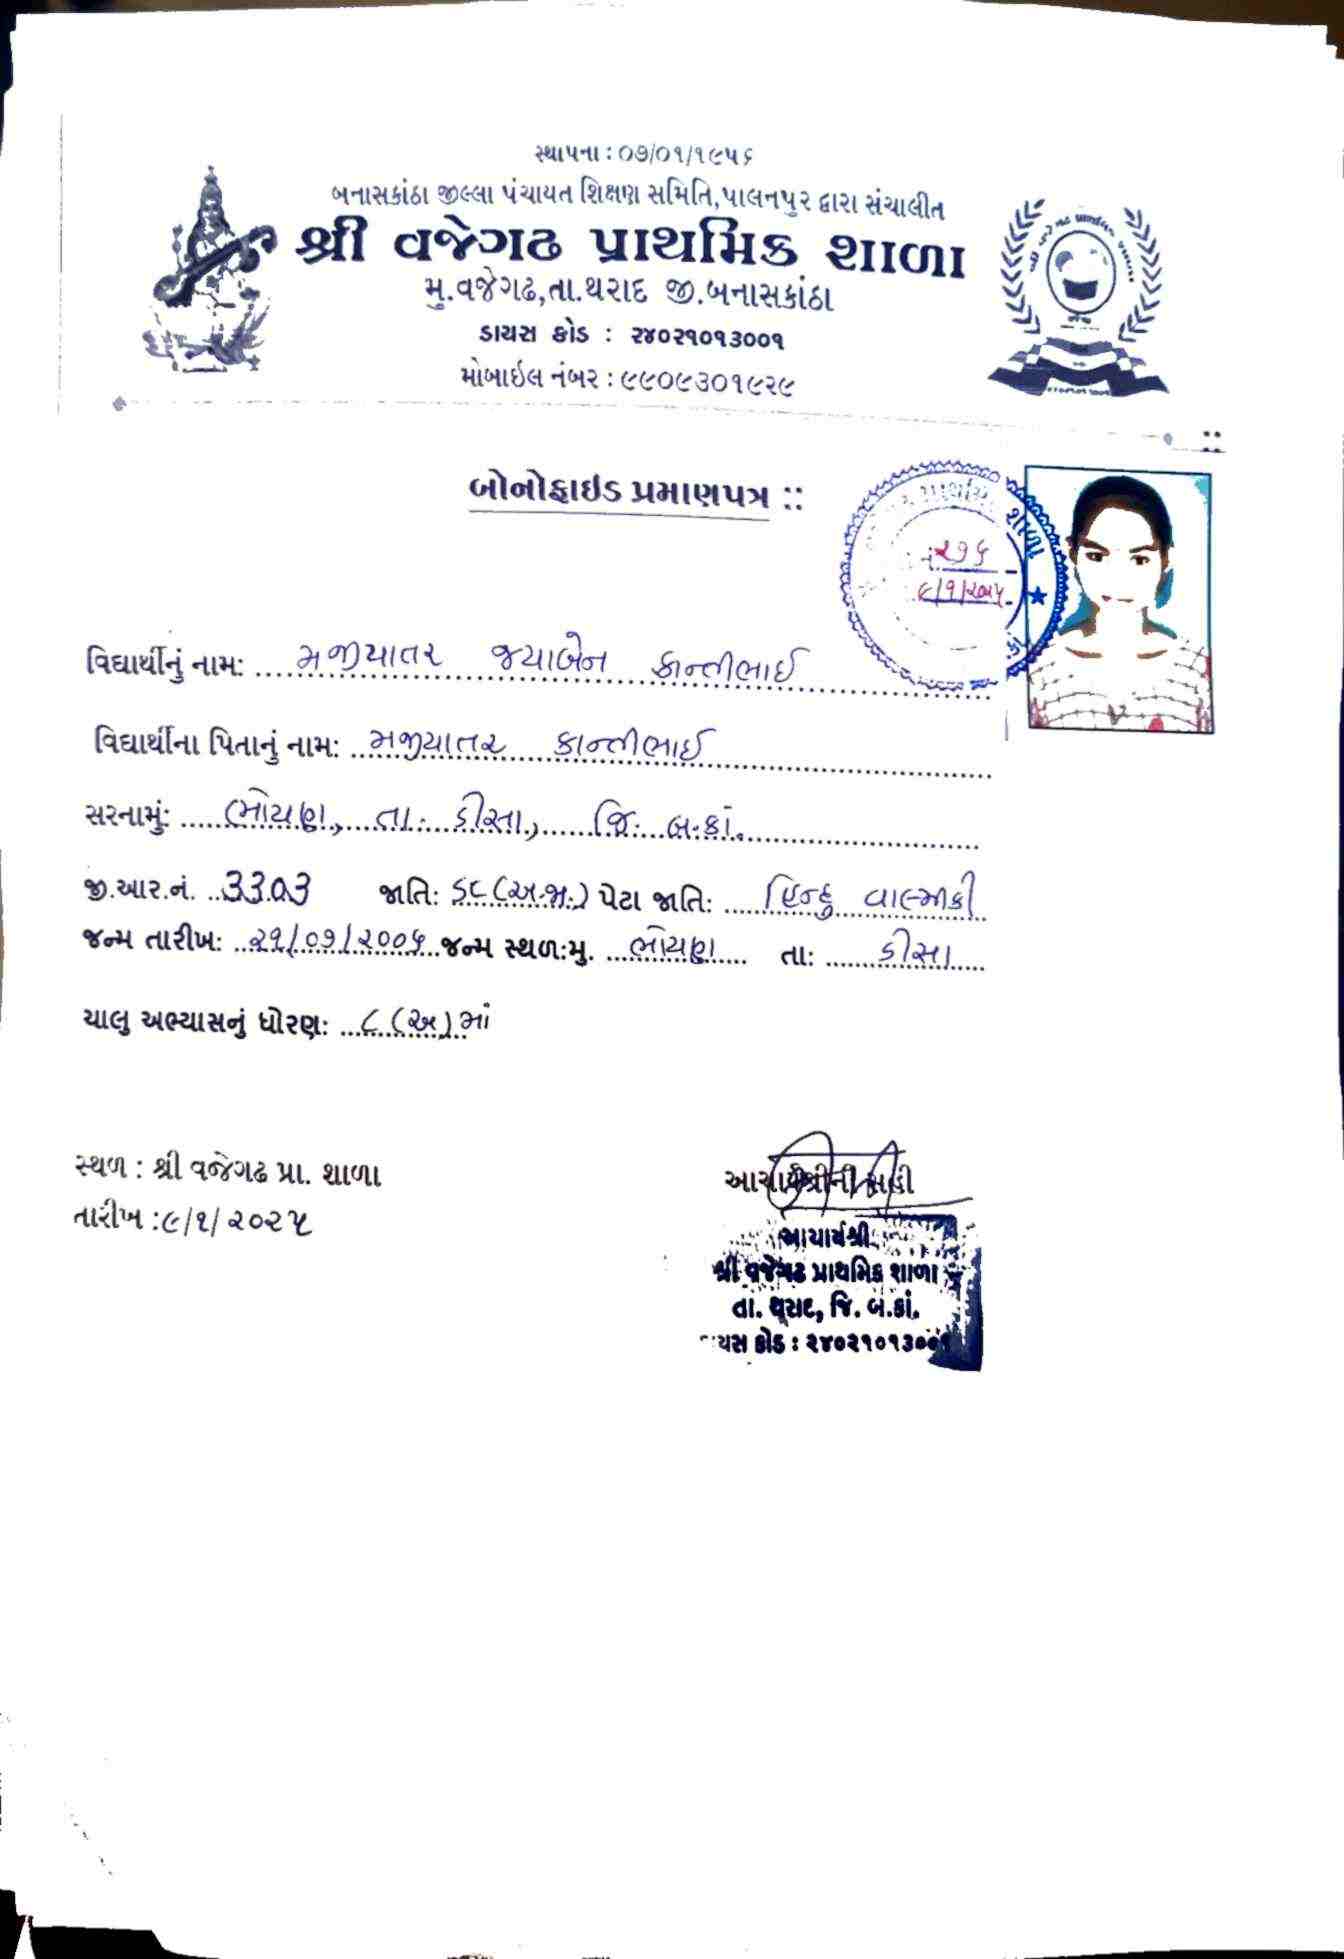 સ્થાપના : ૦૭/૦૧/૧૯૫૬
બનાસકાંઠા જીલ્લા પંચાયત શિક્ષણ સમિતિ,પાલનપુર દ્વારા સંચાલીત
શ્રી વજેગઢ પ્રાથમિક શાળા
મુ.વજેગઢ,તા.થરાદ જી.બનાસકાંઠા
ડાયસ કોડ : ૨૪૦૨૧૦૧૩૦૦૧
મોબાઈલ નંબર : ૯૯૦૯૩૦૧૯૨૯
::
બોનોફાઇડ પ્રમાણપત્ર ::
પ્રાથમિક શાળા
૨૭૬
૯/૧/૨૦૨૫
વિદ્યાર્થીનું નામ: મજીયાતર જયાબેન કાન્તીભાઈ
વિદ્યાર્થીના પિતાનું નામ: મજીયાતર કાન્તીભાઈ
સરનામું: ભોયણ, તા. ડીસા, જિ. બ.કાં.
જી.આર.નં. 3303 જાતિ: (અ.જા.) પેટા જાતિ: હિન્દુ વાલ્મીકી
જન્મ તારીખ: ૨૧/૦૭/૨૦૦૬ જન્મ સ્થળ:મુ. ભોયણ તા: ડીસા
ચાલુ અભ્યાસનું ધોરણ: ૮ (અ) માં
સ્થળ : શ્રી વજેગઢ પ્રા. શાળા
તારીખ :૯/૧/૨૦૨૫
આચાર્યશ્રીની સહી
આચાર્યશ્રી
શ્રી વજેગઢ પ્રાથમિક શાળા
તા. થરાદ, જિ. બ.કાં.
ડાયસ કોડ : ૨૪૦૨૧૦૧૩૦૦૧